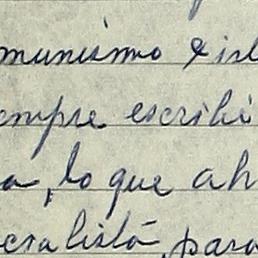 munismo e isl
empre escribi
a, lo que ah
eralista, para